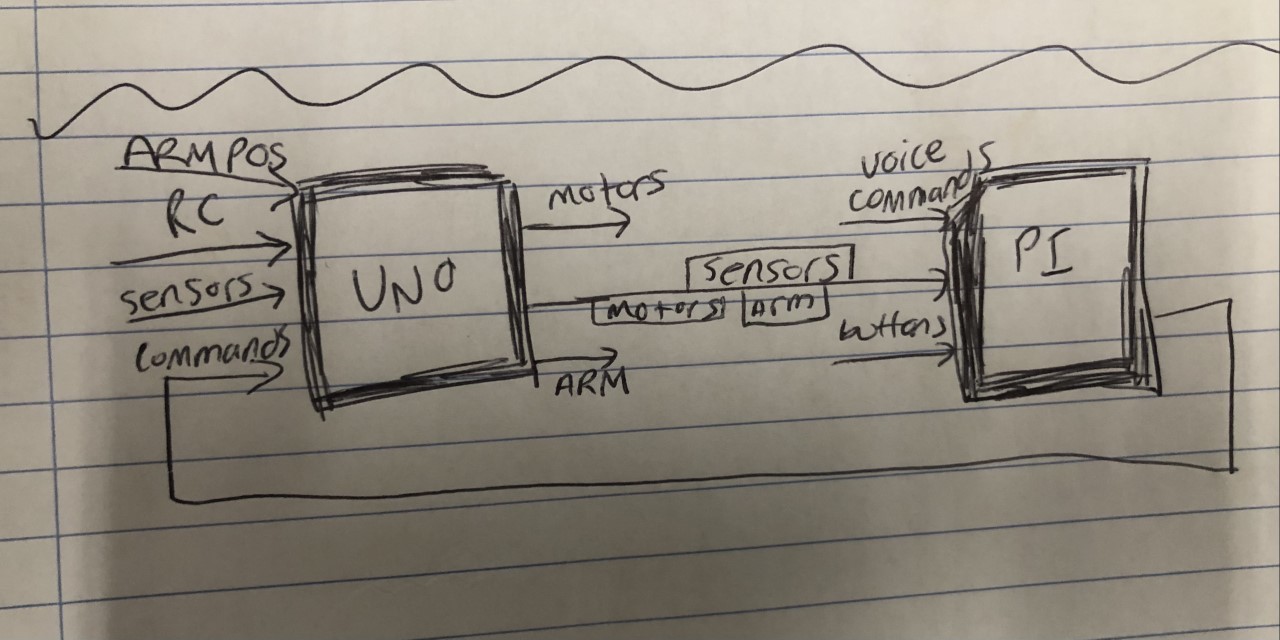 ARM POS
RC
sensors
commands
UNO
motors
sensors
motors arm
ARM
voice
commands
buttons
PI